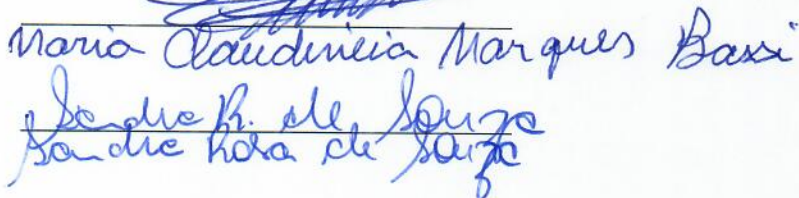 Maria Claudineia Marques Bassi
Sandra R. de Souza
Sandra Rosa de Souza